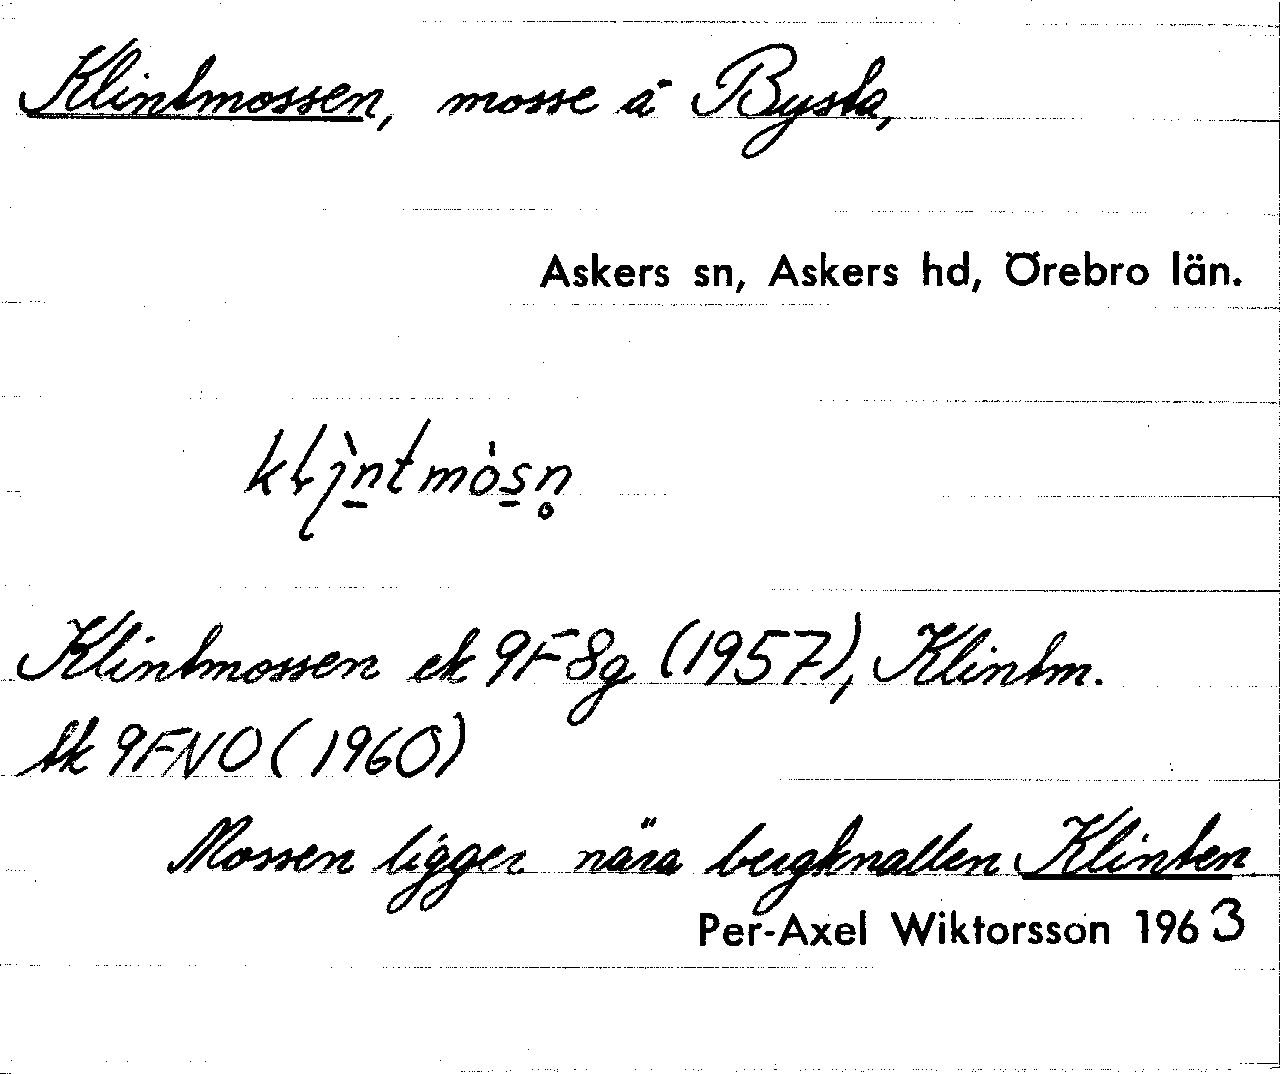 Klintmossen, mosse å Bysta,
Askers sn, Askers hd, Örebro län.
Klintmossen ek 9F8g (1957), Klintm.
tk 9FNO (1960)
Mossen ligger nära bergknallen Klinten
Per-Axel Wiktorsson 1963